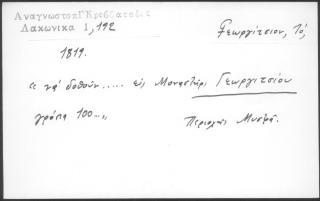 Ἀναγνωστοπ Γ Κρεββατᾶς
Λακωνικὰ 1, 192
Γεωργίτσιον, Τό,
1819.
« νὰ δοθοῦν ..... εἰς Μοναστήρι Γεωργιτσίου
γρόσια 100 ...»
Περιοχῆς Μυστρᾶ.